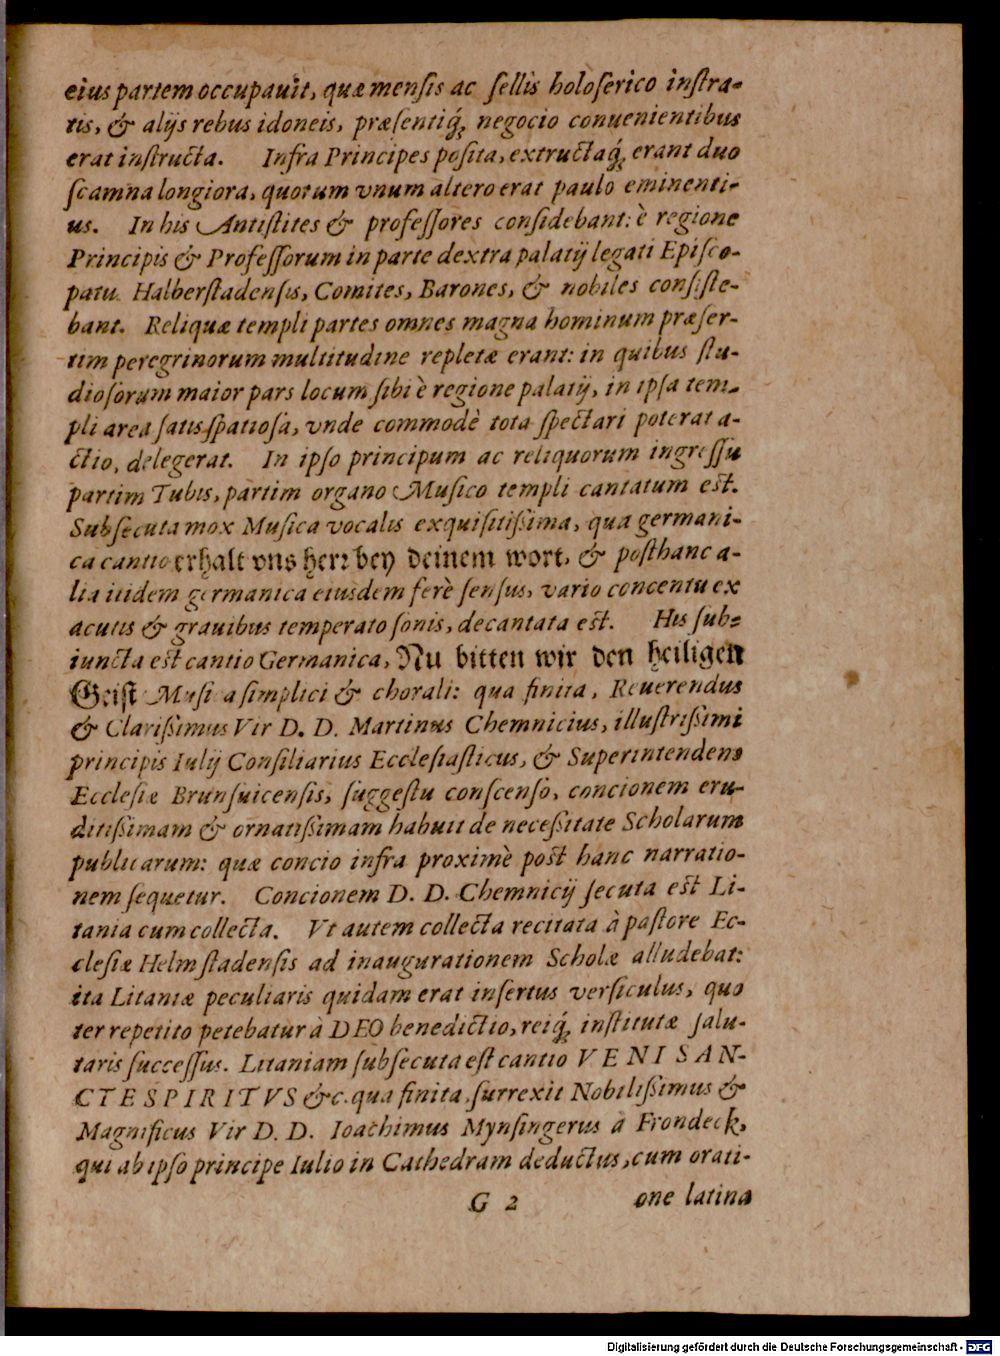 eius partem occupauit, quæ mensis ac ſellis holoſerico inſtra-
tis, & alijs rebus idoneis, præſentiq́; negocio conuenientibus
erat inſtructa. Infra Principes poſita, extructaq́; erant duo
ſcamna longiora, quorum vnum altero erat paulo eminenti-
us. In his Antiſtites & profeſſores conſidebant: è regione
Principis & Profeſſorum in parte dextra palatij legati Epiſco-
patu Halberſtadenſis, Comites, Barones, & nobiles conſiſte-
bant. Reliquæ templi partes omnes magna hominum præſer-
tim peregrinorum multitudine repletæ erant: in quibus ſtu-
dioſorum maior pars locum ſibi è regione palatij, in ipſa tem-
pli area ſatis ſpatioſa, vnde commodè tota ſpectari poterat a-
ctio, delegerat. In ipſo principum ac reliquorum ingreſſu
partim Tubis, partim organo Muſico templi cantatum eſt.
Subſecuta mox Muſica vocalis exquiſitiſſima, qua germani-
ca cantio erhalt vns herr bey deinem wort, & poſthanc a-
lia itidem germanica eiusdem ferè ſenſus, vario concentu ex
acutis & grauibus temperato ſonis, decantata eſt. His ſub-
iuncta eſt cantio Germanica, Nu bitten wir den heiligen
Geiſt Muſi a ſimplici & chorali: qua finita, Reuerendus
& Clariſſimus Vir D. D. Martinus Chemnicius, illuſtriſſimi
principis Iulij Conſiliarius Eccleſiaſticus, & Superintendens
Eccleſiæ Brunſuicenſis, ſuggeſtu conſcenſo, concionem eru-
ditiſſimam & ornatiſſimam habuit de neceſſitate Scholarum
publicarum: quæ concio infra proximè poſt hanc narratio-
nem ſequetur. Concionem D. D. Chemnicij ſecuta eſt Li-
tania cum collecta. Vt autem collecta recitata à paſtore Ec-
cleſiæ Helmſtadenſis ad inaugurationem Scholæ alludebat:
ita Litaniæ peculiaris quidam erat inſertus verſiculus, quo
ter repetito petebatur à DEO benedictio, reiq́; inſtitutæ ſalu-
taris ſucceſſus. Litaniam ſubſecuta eſt cantio VENI SAN-
CTE SPIRITVS &c. qua finita, ſurrexit Nobiliſſimus &
Magnificus Vir D. D. Ioachimus Mynſingerus à Frondeck,
qui ab ipſo principe Iulio in Cathedram deductus, cum orati-
G 2 one latina
Digitalisierung gefördert durch die Deutsche Forschungsgemeinschaft - DFG